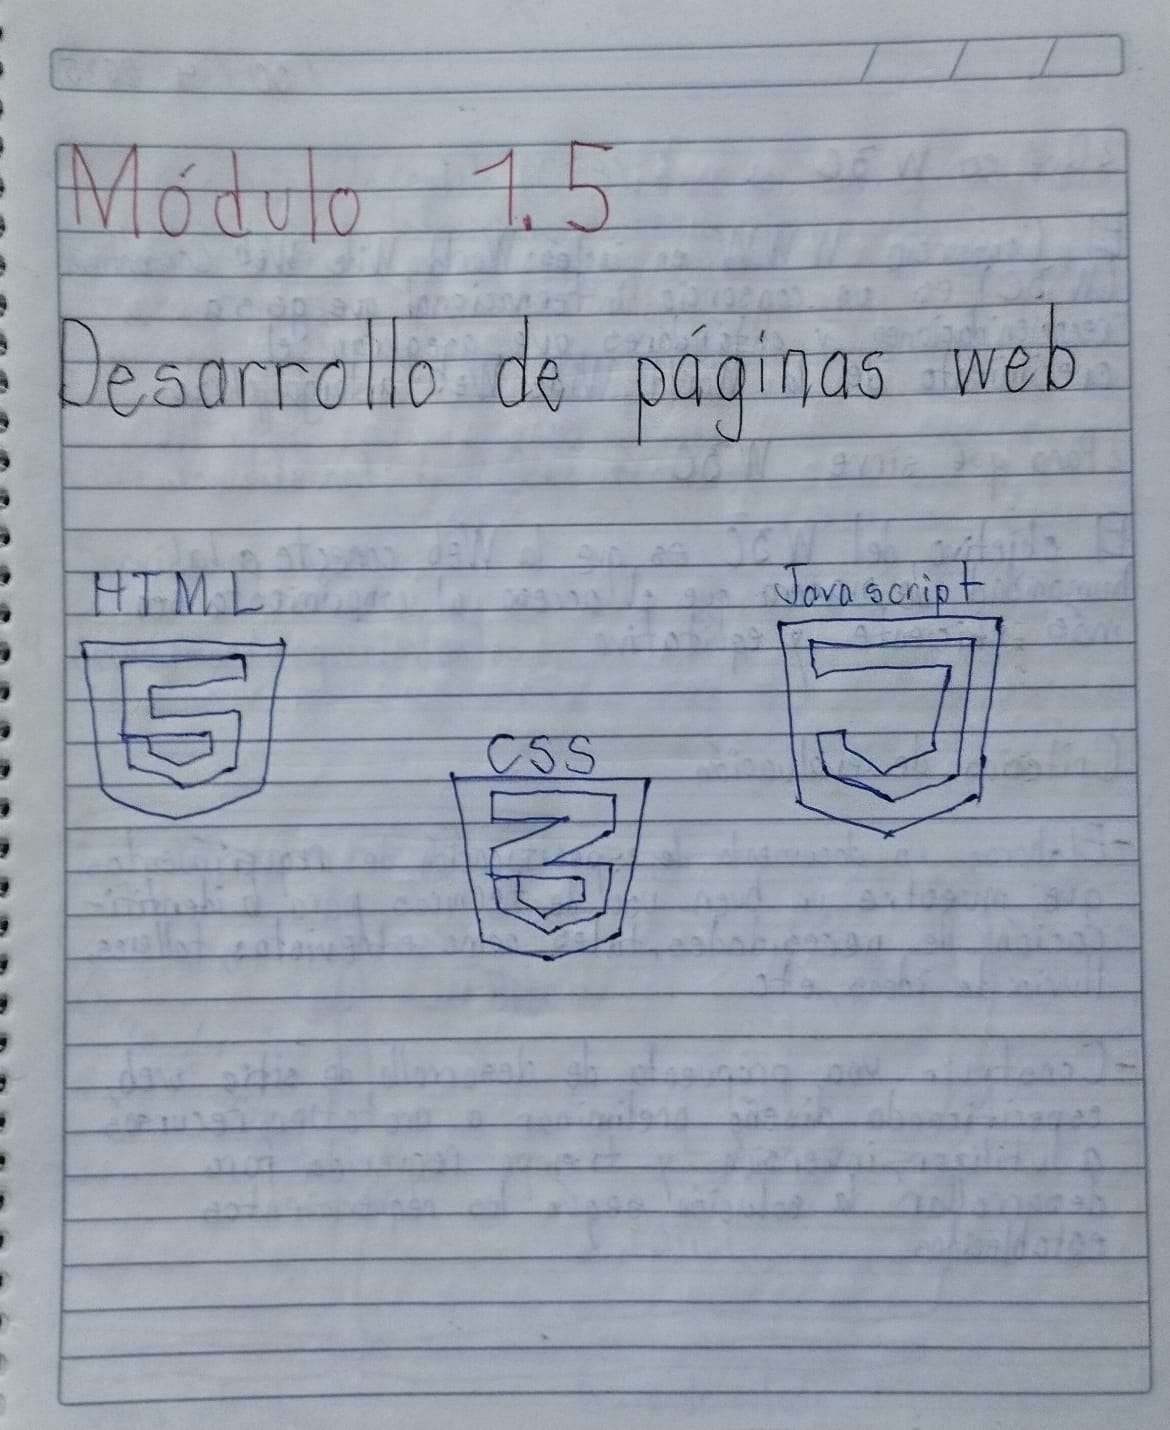 Módulo 1.5
Desarrollo de páginas web
HTML
Javascript
CSS